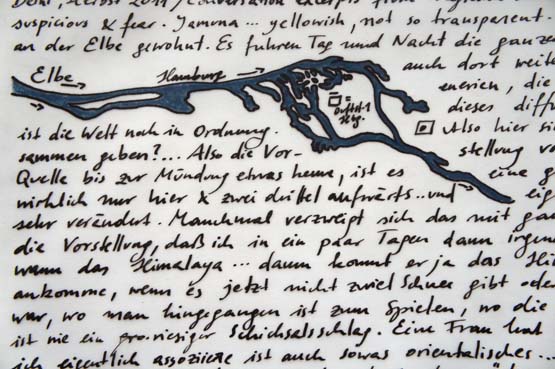 suspicious & fear. Yamuna... yellowish, not so transparent.
an der Elbe gewohnt. Es fuhren Tag und Nacht die ganze
auch dort weite
Elbe → Hamburg →
enerien, die
dieses diff
ist die Welt noch in Ordnung. Also hier si
sammen geben?... Also die Vor- stellung vo
Quelle bis zur Mündung etwas , ist es eine g
wirklich nur hier & zwei drittel aufwärts.. und eig
sehr verändert. Manchmal verzweigt sich das mit gan
die Vorstellung, daß ich in ein paar Tagen dann irgen
wann das Himalaya... dann kommt er ja das Hi
ankomme, wenn es jetzt nicht zuviel Schnee gibt oder
war, wo man hingegangen ist zum Spielen, wo die
ist wie ein riesiger Schicksalsschlag. Eine Frau hat
ich eigentlich assoziiere ist auch sowas orientalisches...